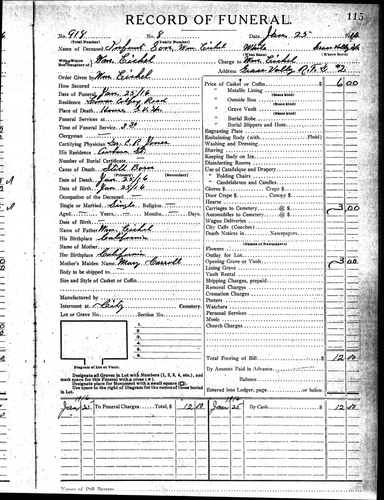 115
RECORD OF FUNERAL.
No. 918 8 Date, Jan. 25
(Total Number) (Yearly Number)
Name of Deceased Infant Son, Wm. Eichel White Grass Valley
Wm. Eichel Charge to Wm. Eichel
Address Grass Valley R.F.D. #2
Order Given by Wm. Eichel
How Secured
Date of Funeral Jan. 25/16
Residence
Place of Death
Funeral Services at
Time of Funeral Service
Clergyman
Certifying Physician Dr. C. P. Jones
His Residence
Number of Burial Certificate
Cause of Death Still Born
Date of Death Jan. /16
Date of Birth Jan. 25/16
Single or Married Single Religion
Aged Years Months Days
Date of Birth
Name of Father Wm. Eichel
His Birthplace California
Name of Mother
Her Birthplace California
Mother's Maiden Name Mary Carroll
Body to be shipped to
Size and Style of Casket or Coffin
Manufactured by
Interment at City Cemetery.
Lot or Grave No. Section No.
1
2
3
4
5
6
Diagram of Lot or Vault.
Designate all Graves in Lot with Numbers (1, 2, 3, 4, etc.), and
mark space for this Funeral with a cross (+).
Designate place of Monument with a small square
Use space in the right of Diagram for the names of those buried
in Lot.
Price of Casket or Coffin 6 00
Metallic Lining
Outside Box
(State kind)
Grave Vault
(State kind)
Burial Robe
(State kind)
Burial Slippers and Hose
Engraving Plate
Embalming Body (with Fluid)
Washing and Dressing
Shaving
Keeping Body on Ice
Disinfecting Rooms
Use of Catafalque and Drapery
" Folding Chairs
" Candelabrum and Candles
Gloves $ Crape $
Door Crape $ Canopy $
Hearse
Carriages to Cemetery @ $ 3 00
Automobiles to Cemetery @ $
Wagon Deliveries
City Calls (Coaches)
Death Notices in Newspapers
(Names of Newspapers)
Flowers
Outlay for Lot
Opening Grave or Vault 3 00
Lining Grave
Vault Rental
Shipping Charges, prepaid
Removal Charges
Cremation Charges
Porters
Watchers
Personal Services
Music
Church Charges
Total Footing of Bill $ 12 00
By Amount Paid in Advance
Balance
Entered into Ledger, page or below.
1916
Jan 25 To Funeral Charges Total, $ 12 00
1916
Jan 25 By Cash $ 12 00
Names of Pall Bearers